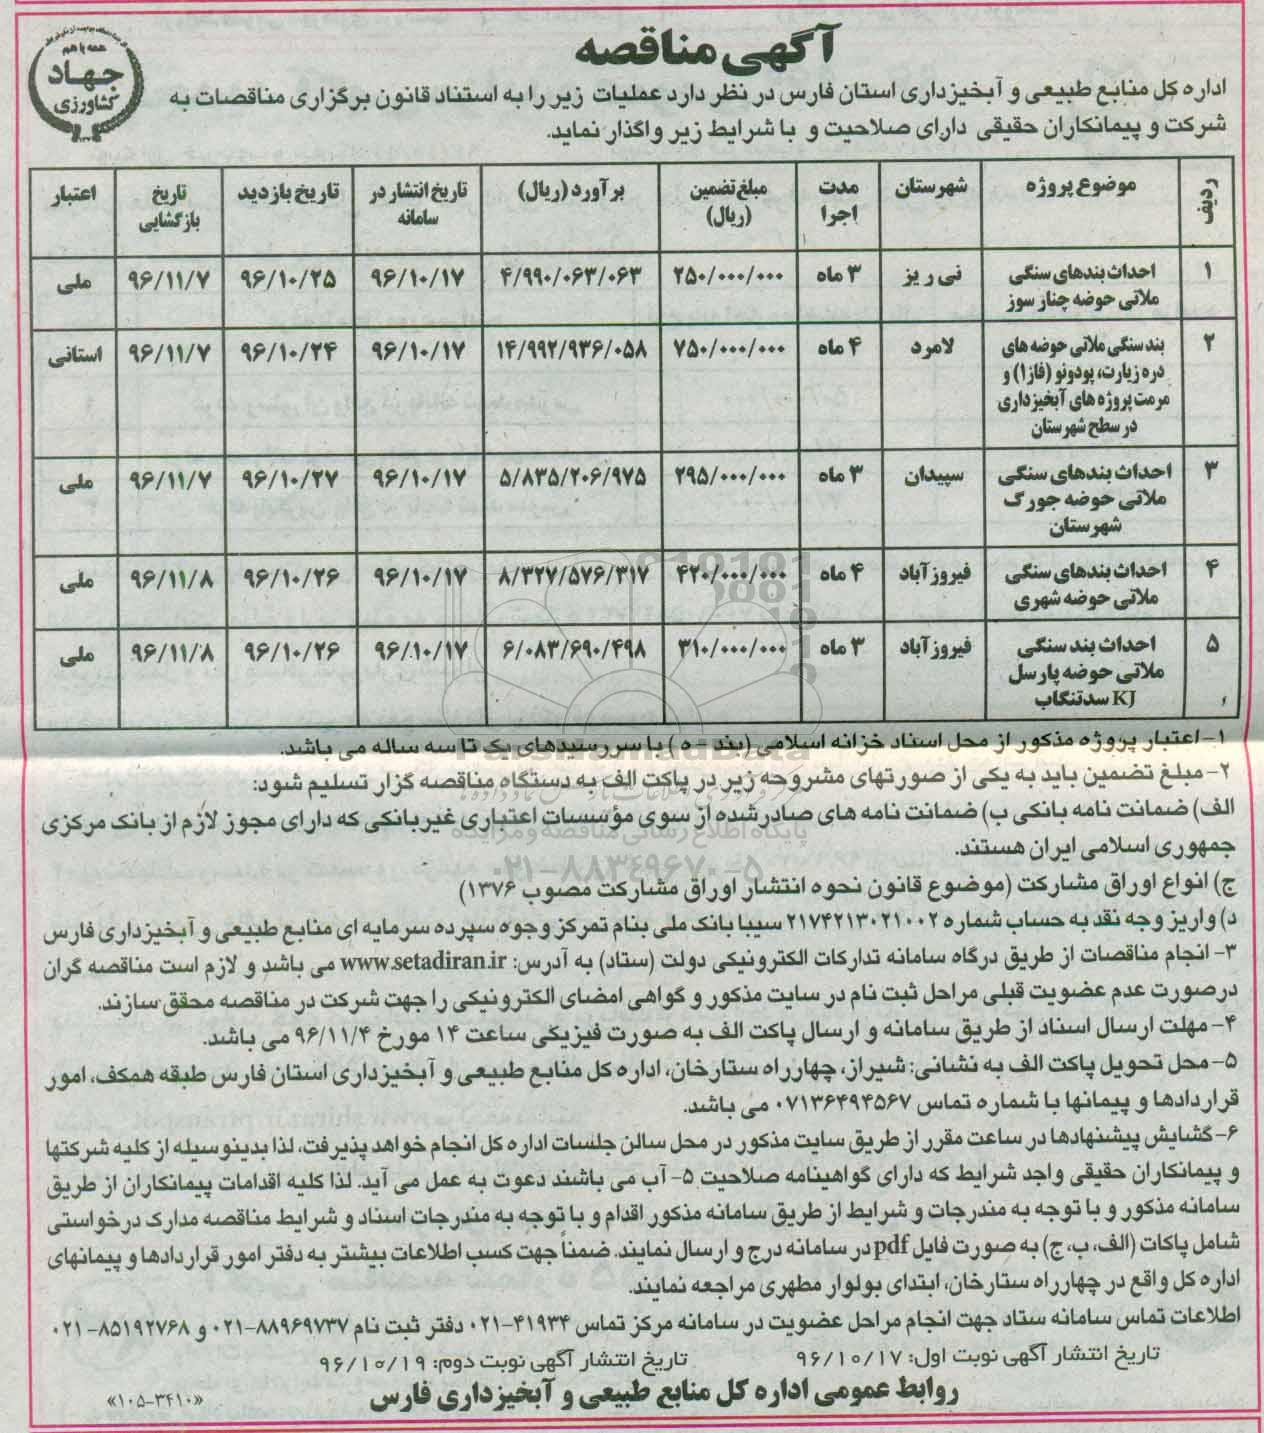 آگهی مناقصه
همه با هم
جهاد
کشاورزی
اداره کل منابع طبیعی و آبخیزداری استان فارس در نظر دارد عملیات زیر را به استناد قانون برگزاری مناقصات به
شرکت و پیمانکاران حقیقی دارای صلاحیت و با شرایط زیر واگذار نماید.
ردیف | موضوع پروژه | شهرستان | مدت اجرا | مبلغ تضمین (ریال) | برآورد (ریال) | تاریخ انتشار در سامانه | تاریخ بازدید | تاریخ بازگشایی | اعتبار
۱ | احداث بندهای سنگی ملاتی حوضه چنار سوز | نی ریز | ۳ ماه | ۲۵۰/۰۰۰/۰۰۰ | ۴/۹۹۰/۰۶۳/۰۶۳ | ۹۶/۱۰/۱۷ | ۹۶/۱۰/۲۵ | ۹۶/۱۱/۷ | ملی
۲ | بند سنگی ملاتی حوضه های دره زیارت، پودونو (فاز۱) و مرمت پروژه های آبخیزداری در سطح شهرستان | لامرد | ۴ ماه | ۷۵۰/۰۰۰/۰۰۰ | ۱۴/۹۹۲/۹۳۶/۰۵۸ | ۹۶/۱۰/۱۷ | ۹۶/۱۰/۲۴ | ۹۶/۱۱/۷ | استانی
۳ | احداث بندهای سنگی ملاتی حوضه جورگ شهرستان | سپیدان | ۳ ماه | ۲۹۵/۰۰۰/۰۰۰ | ۵/۸۳۵/۲۰۶/۹۷۵ | ۹۶/۱۰/۱۷ | ۹۶/۱۰/۲۷ | ۹۶/۱۱/۷ | ملی
۴ | احداث بندهای سنگی ملاتی حوضه شهری | فیروزآباد | ۴ ماه | ۴۲۰/۰۰۰/۰۰۰ | ۸/۳۲۷/۵۷۶/۳۱۷ | ۹۶/۱۰/۱۷ | ۹۶/۱۰/۲۶ | ۹۶/۱۱/۸ | ملی
۵ | احداث بند سنگی ملاتی حوضه پارسل KJ سدتنگاب | فیروزآباد | ۳ ماه | ۳۱۰/۰۰۰/۰۰۰ | ۶/۰۸۳/۶۹۰/۴۹۸ | ۹۶/۱۰/۱۷ | ۹۶/۱۰/۲۶ | ۹۶/۱۱/۸ | ملی
۱- اعتبار پروژه مذکور از محل اسناد خزانه اسلامی (بند - ه ) با سررسیدهای یک تا سه ساله می باشد.
۲- مبلغ تضمین باید به یکی از صورتهای مشروحه زیر در پاکت الف به دستگاه مناقصه گزار تسلیم شود:
الف) ضمانت نامه بانکی ب) ضمانت نامه های صادرشده از سوی مؤسسات اعتباری غیربانکی که دارای مجوز لازم از بانک مرکزی
جمهوری اسلامی ایران هستند.
ج) انواع اوراق مشارکت (موضوع قانون نحوه انتشار اوراق مشارکت مصوب ۱۳۷۶)
د) واریز وجه نقد به حساب شماره ۲۱۷۴۲۱۳۰۲۱۰۰۲ سیبا بانک ملی بنام تمرکز وجوه سپرده سرمایه ای منابع طبیعی و آبخیزداری فارس
۳- انجام مناقصات از طریق درگاه سامانه تدارکات الکترونیکی دولت (ستاد) به آدرس: www.setadiran.ir می باشد و لازم است مناقصه گران
درصورت عدم عضویت قبلی مراحل ثبت نام در سایت مذکور و گواهی امضای الکترونیکی را جهت شرکت در مناقصه محقق سازند.
۴- مهلت ارسال اسناد از طریق سامانه و ارسال پاکت الف به صورت فیزیکی ساعت ۱۴ مورخ ۹۶/۱۱/۴ می باشد.
۵- محل تحویل پاکت الف به نشانی: شیراز، چهارراه ستارخان، اداره کل منابع طبیعی و آبخیزداری استان فارس طبقه همکف، امور
قراردادها و پیمانها با شماره تماس ۰۷۱۳۶۴۹۴۵۶۷ می باشد.
۶- گشایش پیشنهادها در ساعت مقرر از طریق سایت مذکور در محل سالن جلسات اداره کل انجام خواهد پذیرفت، لذا بدینوسیله از کلیه شرکتها
و پیمانکاران حقیقی واجد شرایط که دارای گواهینامه صلاحیت ۵- آب می باشند دعوت به عمل می آید. لذا کلیه اقدامات پیمانکاران از طریق
سامانه مذکور و با توجه به مندرجات و شرایط از طریق سامانه مذکور اقدام و با توجه به مندرجات اسناد و شرایط مناقصه مدارک درخواستی
شامل پاکات (الف، ب، ج) به صورت فایل pdf در سامانه درج و ارسال نمایند. ضمناً جهت کسب اطلاعات بیشتر به دفتر امور قراردادها و پیمانهای
اداره کل واقع در چهارراه ستارخان، ابتدای بولوار مطهری مراجعه نمایند.
اطلاعات تماس سامانه ستاد جهت انجام مراحل عضویت در سامانه مرکز تماس ۴۱۹۳۴-۰۲۱ دفتر ثبت نام ۸۸۹۶۹۷۳۷-۰۲۱ و ۸۵۱۹۲۷۶۸-۰۲۱
تاریخ انتشار آگهی نوبت اول: ۹۶/۱۰/۱۷ تاریخ انتشار آگهی نوبت دوم: ۹۶/۱۰/۱۹
روابط عمومی اداره کل منابع طبیعی و آبخیزداری فارس
«۱۰۵-۳۴۱۰»
ParsNamadData
پایگاه اطلاع رسانی مناقصه و مزایده
۰۲۱-۸۸۳۴۹۶۷۰-۵